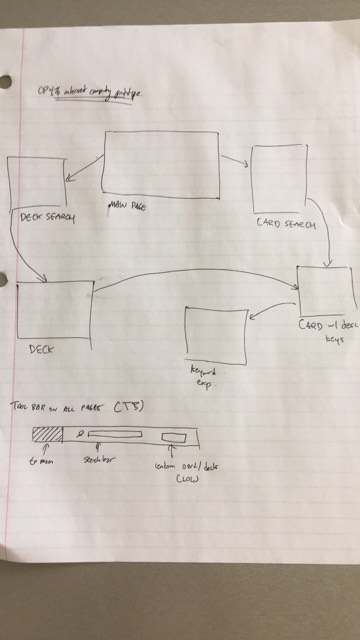 internet company prototype
MAIN PAGE
DECK SEARCH
CARD SEARCH
DECK
CARD w/ desc
keys
keyword
exp.
TOOL BAR ON ALL PAGES (TB)
to main
searchbar
random card/deck
(LOW)